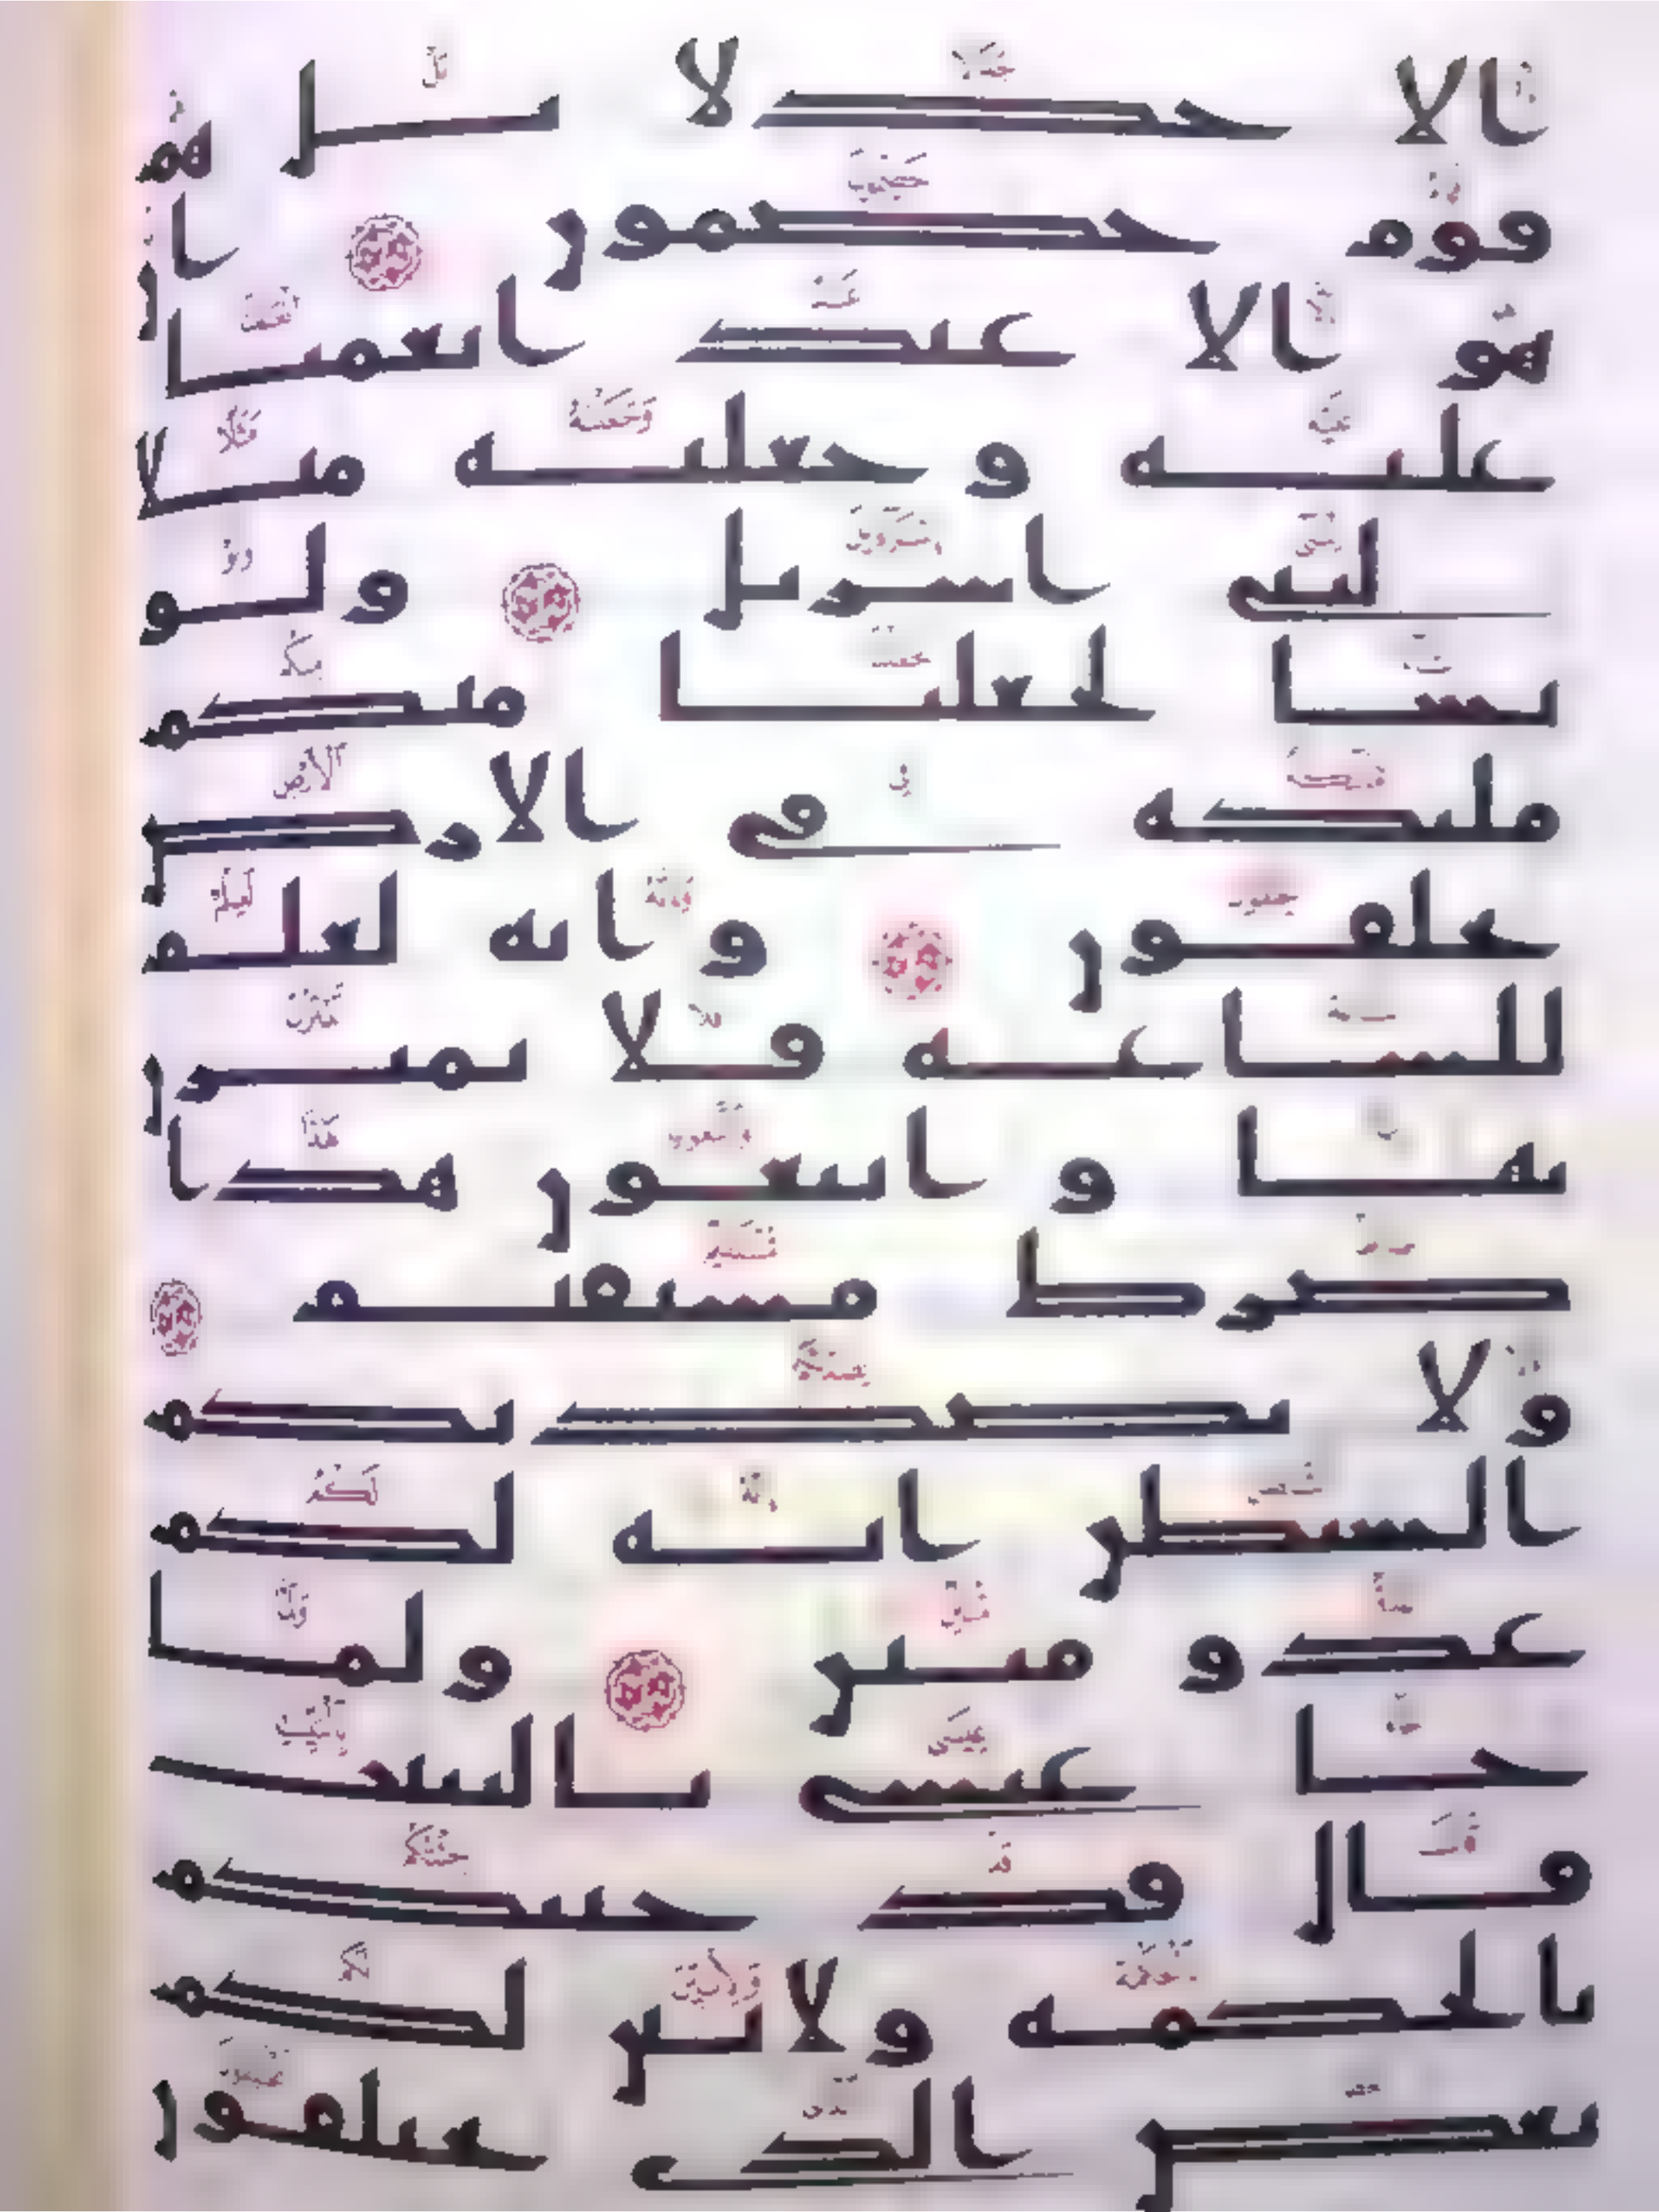 الا جدلا بل هم
قوم خصمون ان
هو الا عبد انعمنا
عليه و جعلنه مثلا
لبنى اسريل ولو
نشا لجعلنا منكم
مليكه فى الارض
يخلفون و انه لعلم
للساعه فلا تمترن
بها و اتبعون هذا
صرط مستقيم
ولا يصدنكم
الشيطن انه لكم
عدو مبين ولما
جا عيسى بالبينت
قال قد جيتكم
بالحكمه ولابين لكم
بعض الذى تختلفون